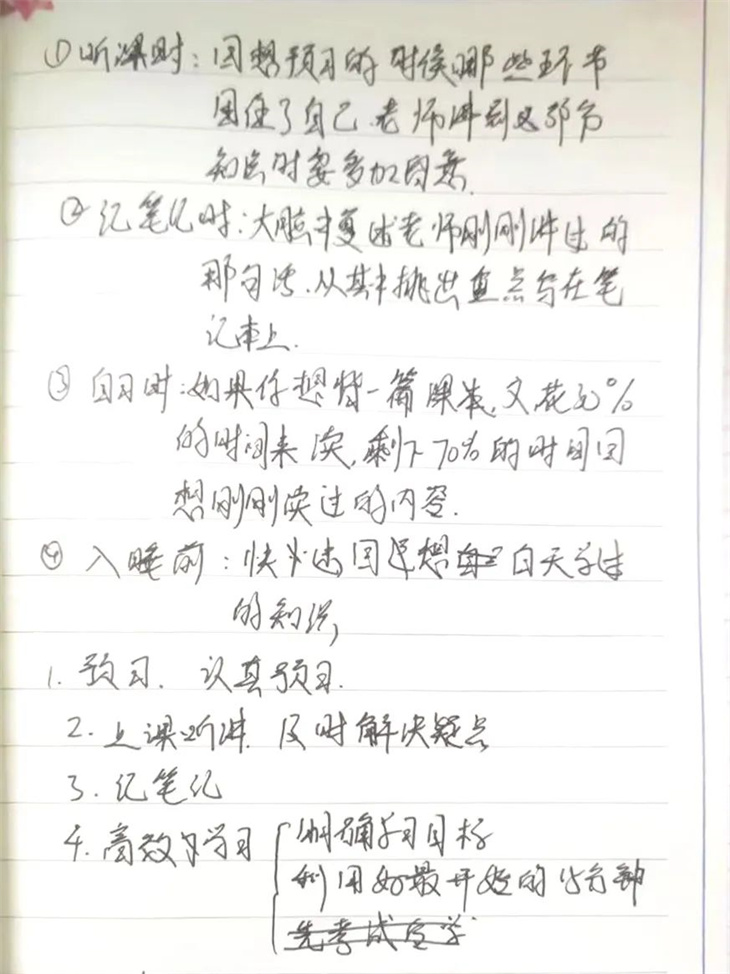 ①听课时：回想预习的时侯哪些环节
困住了自己.老师讲到这部分
知识时要多加留意.
②记笔记时：大脑中复述老师刚刚讲过的
那句话.从其中挑出重点写在笔
记本上.
③自习时：如果你想背一篇课本,文花30%
的时间来读,剩下70%的时间回
想刚刚读过的内容.
④入睡前：快步速回想白天学过
的知识,
1.预习.认真预习.
2.上课听讲.及时解决疑点
3.记笔记
4.高效学习
明确学习目标
利用好最开始的15分钟
先考试后学